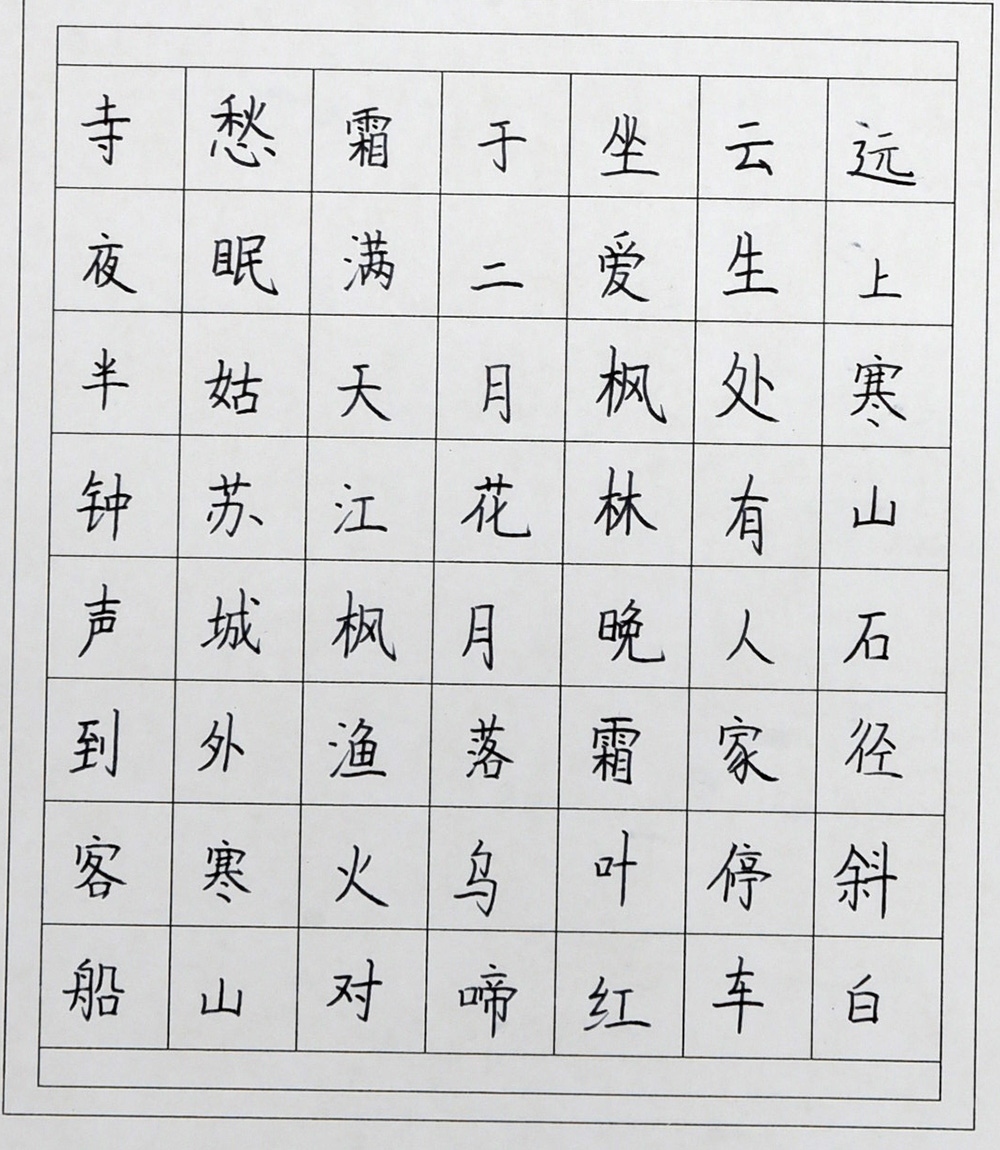 远上寒山石径斜白
云生处有人家停车
坐爱枫林晚霜叶红
于二月花月落乌啼
霜满天江枫渔火对
愁眠姑苏城外寒山
寺夜半钟声到客船